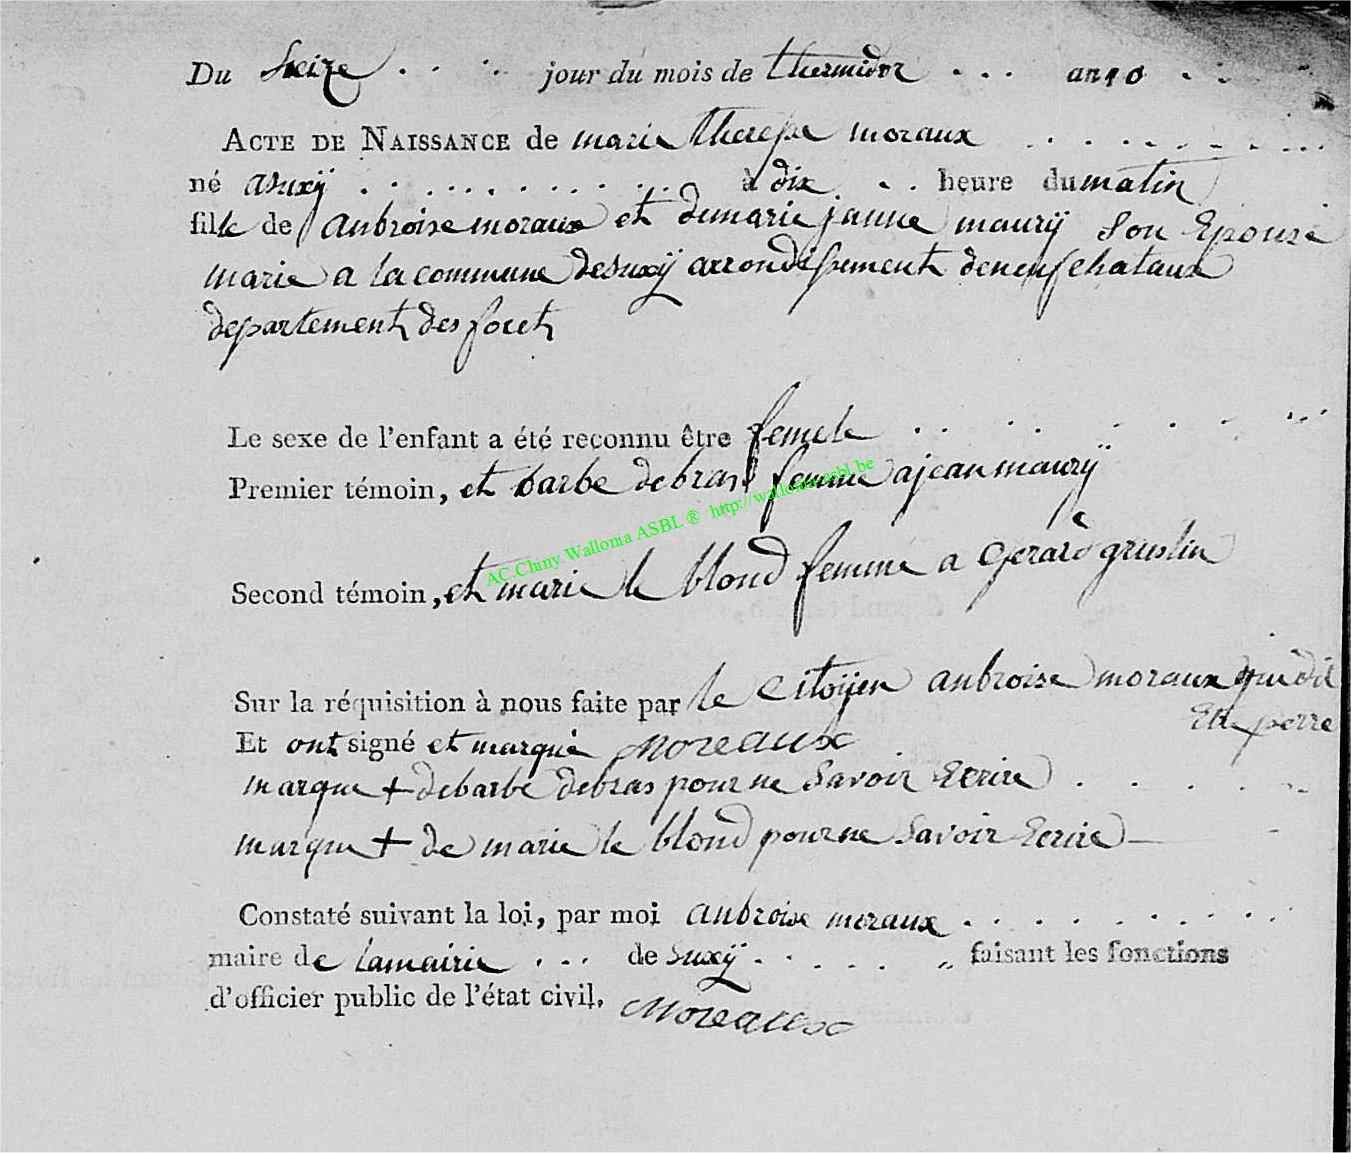 Du Seize . . . . jour du mois de thermidor . . . an 10 . .
ACTE DE NAISSANCE de marie therese moraux . . . . . . . . . .
né a suxÿ . . . . . . . . . . . . à dix . . heure du matin
fille de anbroise moraux et de marie janne maurÿ son Epouse
marie a la commune de suxÿ arrondissement de neufchataux
departement des foret
Le sexe de l'enfant a été reconnu être femele . . . . . . . .
Premier témoin, et barbe debras femme a jean maurÿ
AC.Chiny Wallonia ASBL ® http://wallonia-asbl.be
Second témoin, et marie le blond femme a Gerard gruslin
Sur la réquisition à nous faite par le Citoÿen anbroise moraux qui dit
Etre perre
Et ont signé et marqué Moreaux
marque + de barbe debras pour ne Savoir Ecrire . . . . .
marque + de marie le blond pour ne Savoir Ecrire —
Constaté suivant la loi, par moi anbroise moraux . . . . . . . . . .
maire de la mairie . . . de Suxÿ . . . . . . faisant les fonctions
d'officier public de l'état civil. Moreaux